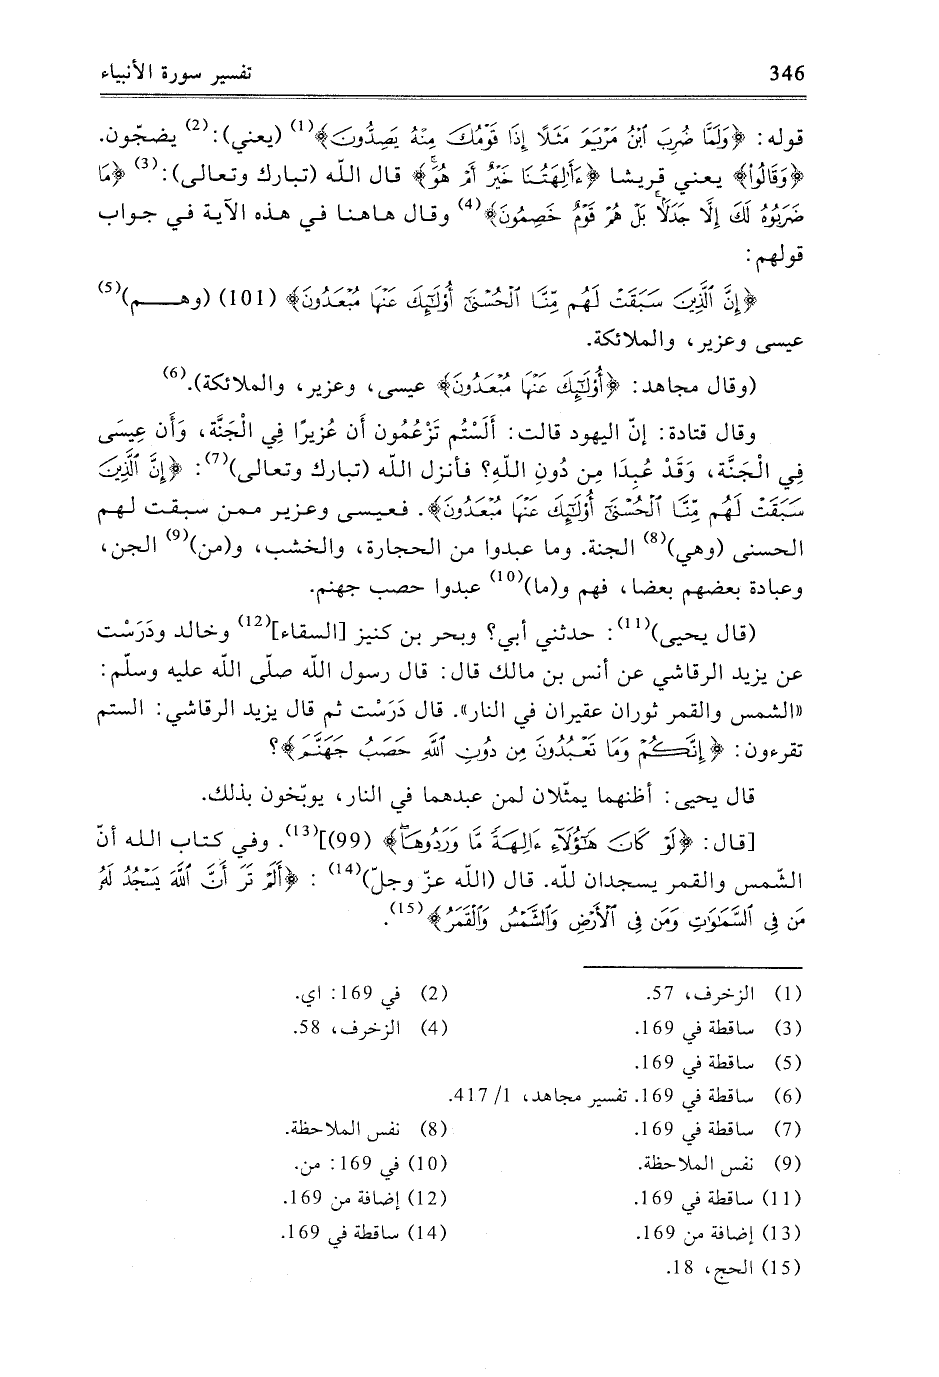 346 تفسير سورة الأنبياء
قوله: ﴿وَلَمَّا ضُرِبَ ٱبْنُ مَرْيَمَ مَثَلًا إِذَا قَوْمُكَ مِنْهُ يَصِدُّونَ﴾(1) (يعني):(2) يضجّون.
﴿وَقَالُوٓا۟﴾ يعني قريشا ﴿ءَأَٰلِهَتُنَا خَيْرٌ أَمْ هُوَ﴾ قال الله (تبارك وتعالى):(3) ﴿مَا
ضَرَبُوهُ لَكَ إِلَّا جَدَلًۢا بَلْ هُمْ قَوْمٌ خَصِمُونَ﴾(4) وقال هاهنا في هذه الآية في جواب
قولهم:
﴿إِنَّ ٱلَّذِينَ سَبَقَتْ لَهُم مِّنَّا ٱلْحُسْنَىٰٓ أُو۟لَٰٓئِكَ عَنْهَا مُبْعَدُونَ﴾ (101) (وهـــم)(5)
عيسى وعزير، والملائكة.
(وقال مجاهد: ﴿أُو۟لَٰٓئِكَ عَنْهَا مُبْعَدُونَ﴾ عيسى، وعزير، والملائكة).(6)
وقال قتادة: إنّ اليهود قالت: أَلَسْتُم تَزْعُمُون أن عُزيرًا فِي الْجَنَّة، وَأَن عِيسَى
فِي الْجَنَّة، وَقَدْ عُبِدَا مِن دُونِ اللّهِ؟ فأنزل الله (تبارك وتعالى)(7): ﴿إِنَّ ٱلَّذِينَ
سَبَقَتْ لَهُم مِّنَّا ٱلْحُسْنَىٰٓ أُو۟لَٰٓئِكَ عَنْهَا مُبْعَدُونَ﴾. فعيسى وعزير ممن سبقت لهم
الحسنى (وهي)(8) الجنة. وما عبدوا من الحجارة، والخشب، و(من)(9) الجن،
وعبادة بعضهم بعضا، فهم و(ما)(10) عبدوا حصب جهنم.
(قال يحيى)(11): حدثني أبي؟ وبحر بن كنيز [السقاء](12) وخالد ودَرَسْت
عن يزيد الرقاشي عن أنس بن مالك قال: قال رسول الله صلّى الله عليه وسلّم:
«الشمس والقمر ثوران عقيران في النار». قال دَرَسْت ثم قال يزيد الرقاشي: الستم
تقرءون: ﴿إِنَّكُمْ وَمَا تَعْبُدُونَ مِن دُونِ ٱللَّهِ حَصَبُ جَهَنَّمَ﴾؟
قال يحيى: أظنهما يمثّلان لمن عبدهما في النار، يوبّخون بذلك.
[قال: ﴿لَوْ كَانَ هَٰٓؤُلَآءِ ءَالِهَةً مَّا وَرَدُوهَا﴾ (99)](13). وفي كتاب الله أنّ
الشّمس والقمر يسجدان للّه. قال (اللّه عزّ وجلّ)(14) : ﴿أَلَمْ تَرَ أَنَّ ٱللَّهَ يَسْجُدُ لَهُۥ
مَن فِى ٱلسَّمَٰوَٰتِ وَمَن فِى ٱلْأَرْضِ وَٱلشَّمْسُ وَٱلْقَمَرُ﴾(15).
(1) الزخرف، 57. (2) في 169: اي.
(3) ساقطة في 169. (4) الزخرف، 58.
(5) ساقطة في 169.
(6) ساقطة في 169. تفسير مجاهد، 1/ 417.
(7) ساقطة في 169. (8) نفس الملاحظة.
(9) نفس الملاحظة. (10) في 169: من.
(11) ساقطة في 169. (12) إضافة من 169.
(13) إضافة من 169. (14) ساقطة في 169.
(15) الحج، 18.